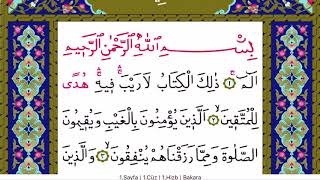 بِسْمِ اللّٰهِ الرَّحْمٰنِ الرَّح۪يمِ
الٓمٓ ﴿١﴾ ذٰلِكَ الْكِتَابُ لَا رَيْبَ ف۪يهِ هُدًى
لِلْمُتَّق۪ينَ ﴿٢﴾ اَلَّذ۪ينَ يُؤْمِنُونَ بِالْغَيْبِ وَيُق۪يمُونَ
الصَّلٰوةَ وَمِمَّا رَزَقْنَاهُمْ يُنْفِقُونَ ﴿٣﴾ وَالَّذ۪ينَ
1.Sayfa | 1.Cüz | 1.Hizb | Bakara